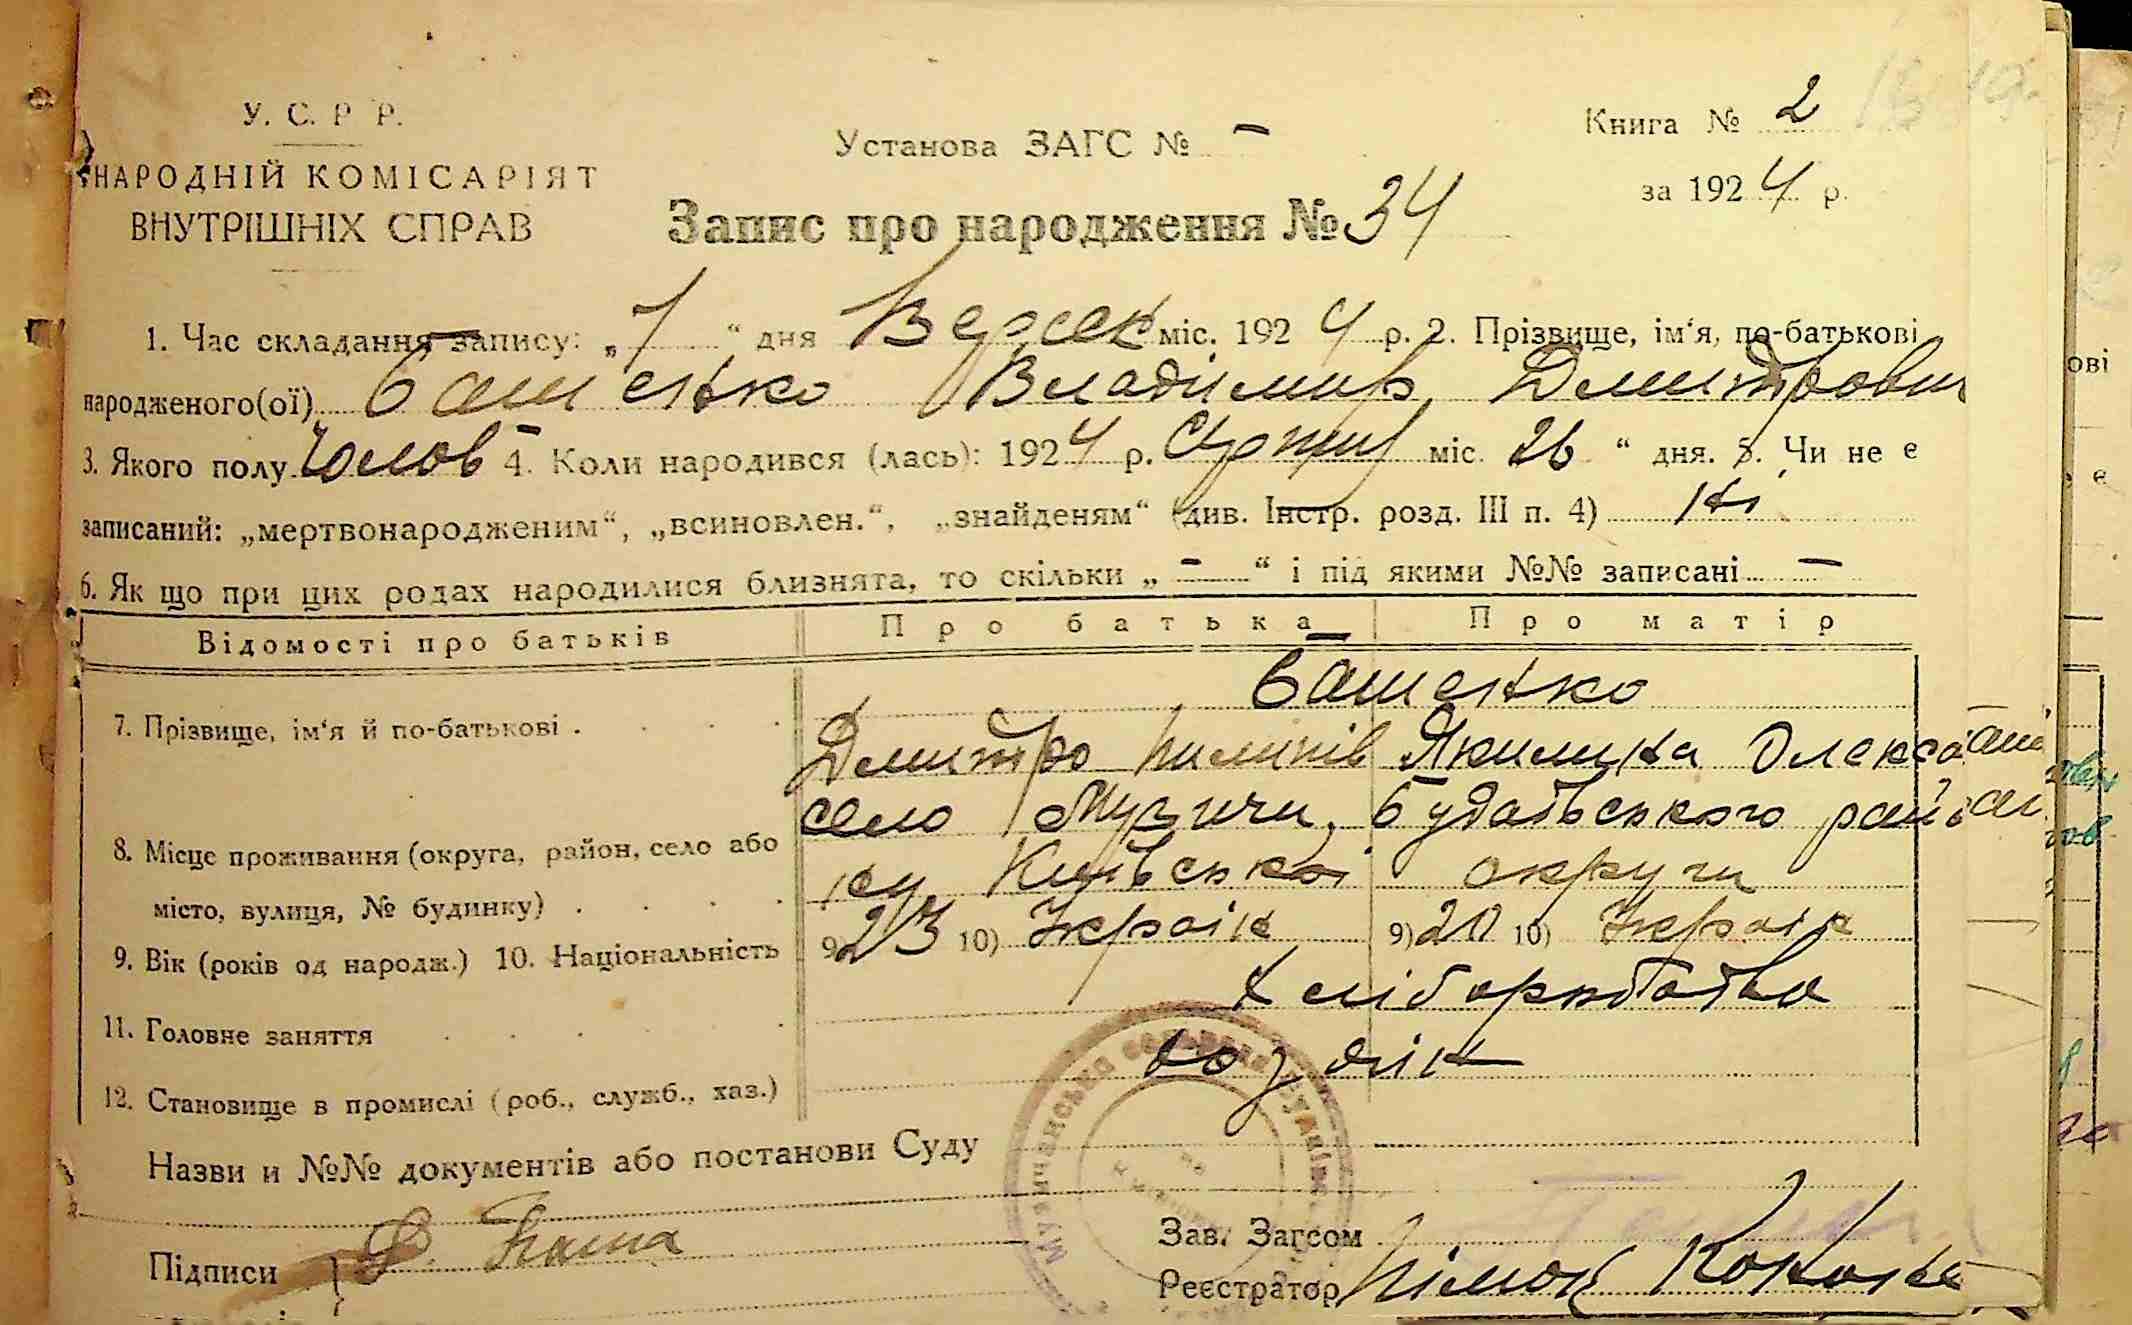 У. С. Р Р.
НАРОДНІЙ КОМІСАРІЯТ
ВНУТРІШНІХ СПРАВ
Установа ЗАГС № –
Книга № 2
за 1924 р.
Запис про народження № 34
1. Час складання запису: „7“ дня Версен міс. 1924 р. 2. Прізвище, ім‘я, по-батькові
народженого(ої) Башенко Владімир Дмитрович
3. Якого полу Чолов 4. Коли народився (лась): 1924 р. Серпня міс. 26 “ дня. 5. Чи не є
записаний: „мертвонародженим“, „всиновлен.“, „знайденям“ (див. Інстр. розд. III п. 4) Ні
6. Як що при цих родах народилися близнята, то скільки „ – “ і під якими №№ записані –
Відомості про батьків Про батька Про матір
Башенко
7. Прізвище, ім‘я й по-батькові . Дмитро Пилипів Якилина Олекса
село Музичи, Будаївського райо
8. Місце проживання (округа, район, село або
місто, вулиця, № будинку) . ну Київської округи
9. Вік (років од народж.) 10. Національність 9) 23 10) Україн 9) 20 10) Україн
11. Головне заняття Хліборобство
12. Становище в промислі (роб., служб., хаз.) хозяїн
Назви и №№ документів або постанови Суду
Зав. Загсом
Підписи
Реєстратор